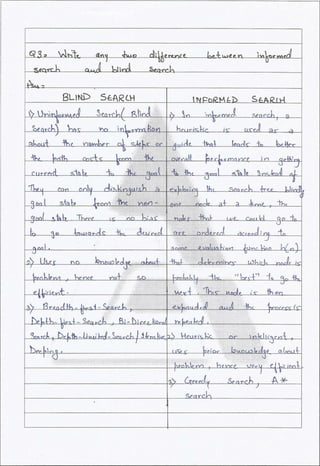 Q3. Write any two difference between informed
search and blind Search
Ans:-
BLIND SEARCH
1) Uninformed Search (Blind
Search) has no information
about the number of steps or
the path costs from the
current state to the goal.
They can only distinguish a
goal state from the non-
goal state. There is no bias
to go towards the desired
goal.
2) Uses no knowledge about
problem, hence not so
efficient.
3) Breadth-first-Search,
Depth-first-Search, Bi-Directional
Search, Depth-Limited-Search / Iterative
Deeping.
INFORMED SEARCH
1) In informed search, a
heuristic is used as a
guide that leads to better
overall performance in getting
to the goal state. Instead of
exploring the search tree blindly
one node at a time, the
nodes that we could go to
are ordered according to
some evaluation function h(n)
that determines which node is
probably the "best" to go to
next. This node is then
expanded and the process is
repeated.
2) Heuristic or intelligent,
uses prior knowledge about
problem, hence very efficient.
3) Greedy Search, A*
search